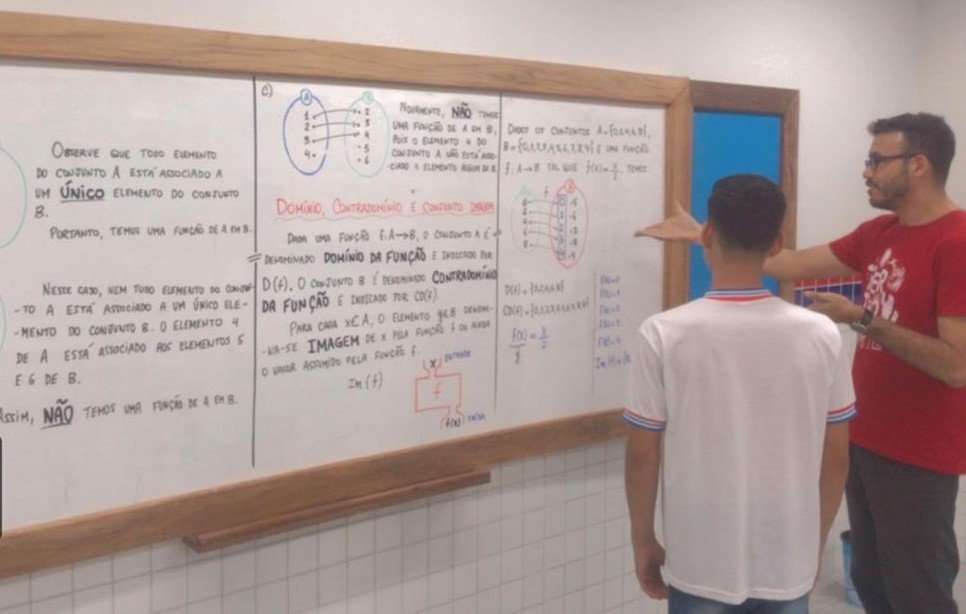 OBSERVE QUE TODO ELEMENTO
DO CONJUNTO A ESTÁ ASSOCIADO A
UM ÚNICO ELEMENTO DO CONJUNTO
B.
PORTANTO, TEMOS UMA FUNÇÃO DE A EM B.
NESSE CASO, NEM TODO ELEMENTO DO CONJUN-
-TO A ESTÁ ASSOCIADO A UM ÚNICO ELE-
-MENTO DO CONJUNTO B. O ELEMENTO 4
DE A ESTÁ ASSOCIADO AOS ELEMENTOS 5
E 6 DE B.
ASSIM, NÃO TEMOS UMA FUNÇÃO DE A EM B.
C)
A
1
2
3
4
B
2
3
4
5
6
NOVAMENTE, NÃO TEMOS
UMA FUNÇÃO DE A EM B,
POIS O ELEMENTO 4 DO
CONJUNTO A NÃO ESTÁ ASSO-
-CIADO A ELEMENTO ALGUM DE B.
DOMÍNIO, CONTRADOMÍNIO E CONJUNTO IMAGEM
DADA UMA FUNÇÃO f: A→B, O CONJUNTO A É
DENOMINADO DOMÍNIO DA FUNÇÃO E INDICADO POR
D(f). O CONJUNTO B É DENOMINADO CONTRADOMÍNIO
DA FUNÇÃO E INDICADO POR CD(f).
PARA CADA x∈A, O ELEMENTO y∈B DENOMI-
-NA-SE IMAGEM DE x PELA FUNÇÃO f OU AINDA
O VALOR ASSUMIDO PELA FUNÇÃO f
Im(f)
(x) ENTRADA
f
f(x) SAÍDA
DADOS OS CONJUNTOS A={0,2,4,6,8},
B={0,1,2,3,4,5,6,7,8,9} E UMA FUNÇÃO
f: A→B TAL QUE f(x)=x/2, TEMOS
f
D(f)={0,2,4,6,8}
CD(f)={0,1,2,3,4,5,6,7,8,9}
Im(f)={